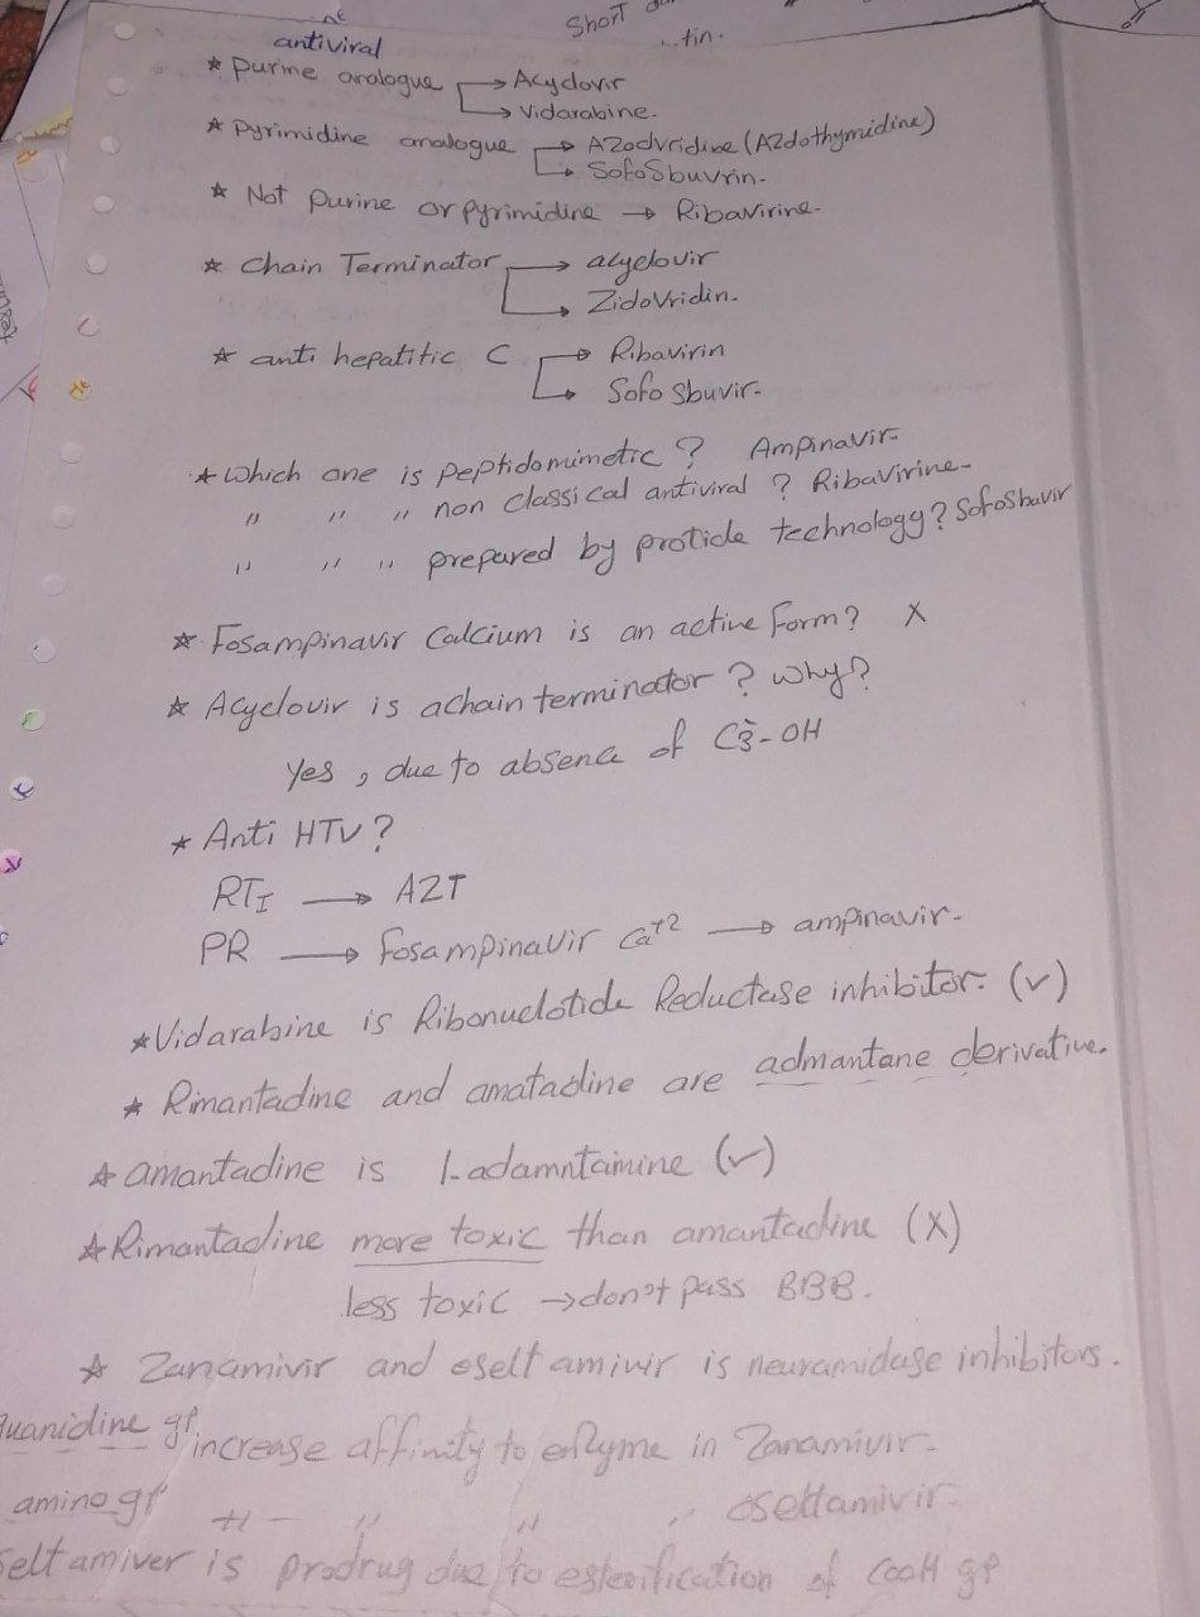 Short
antiviral
..tin.
* purine analogue → Acyclovir
→ Vidarabine.
* pyrimidine analogue → AZodvridine (AZdothymidine)
→ SofoSbuvrin.
* Not purine or pyrimidine → Ribavirine.
* Chain Terminator → alyclovir
→ ZidoVridin.
* anti hepatitic C → Ribavirin
→ Sofo sbuvir.
* Which one is peptidomimetic ? Ampinavir.
" " " non classical antiviral ? Ribavirine.
" " " prepared by protide technology? SofoSbuvir
* Fosampinavir Calcium is an active form? X
* Acyclovir is achain terminator ? Why?
Yes, due to absence of C3̀-OH
* Anti HIV?
RTI → AZT
PR → fosampinavir Ca+2 → ampinavir.
* Vidarabine is Ribonuclotide Reductase inhibitor. (✓)
* Rimantadine and amatadine are admantane derivative.
* amantadine is 1-adamntamine (✓)
* Rimantadine more toxic than amantadine (X)
less toxic → don't pass BBB.
* Zanamivir and oselt amivir is neuramidase inhibitors.
guanidine gp increase affinity to enzyme in Zanamivir.
amino gp " - " " " oseltamivir
selt amiver is prodrug due to esterification of COOH gp